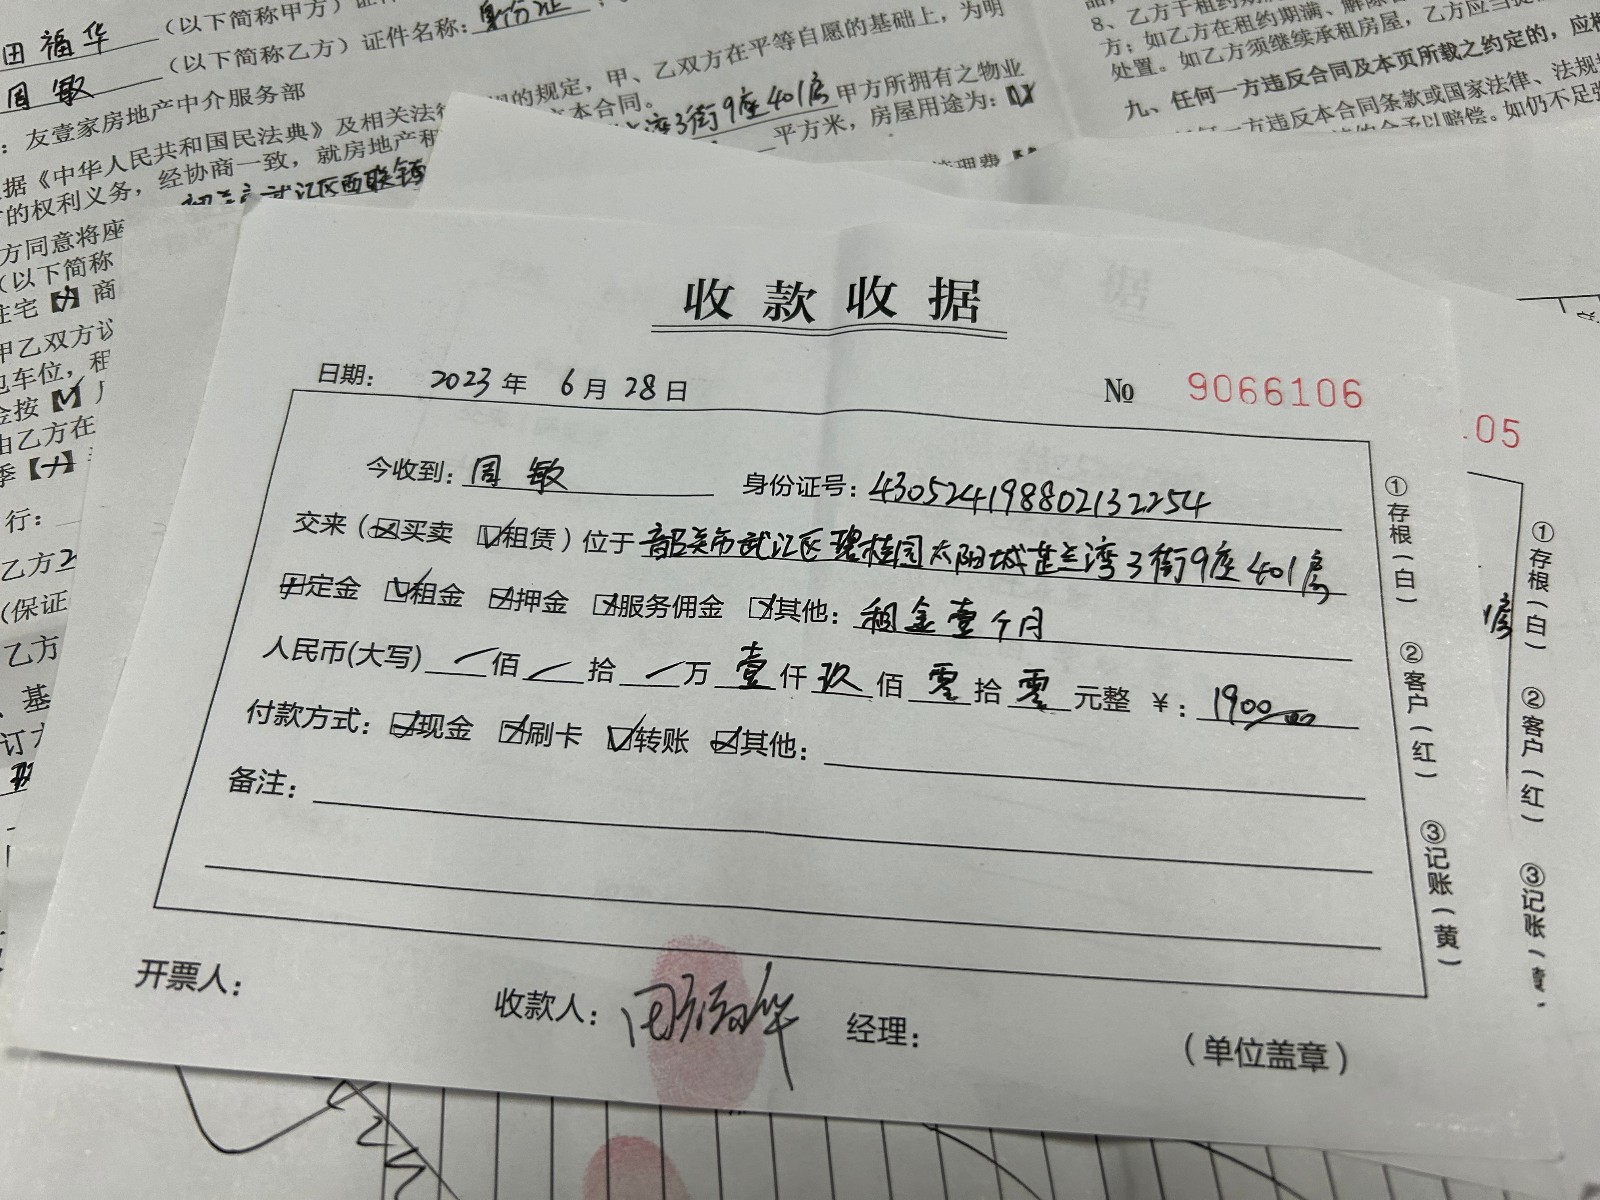 田福华 （以下简称甲方）
周敏 （以下简称乙方）证件名称：身份证
：友壹家房地产中介服务部
据《中华人民共和国民法典》及相关法律 的规定，甲、乙双方在平等自愿的基础上，为明
的权利义务，经协商一致，就房地产租 本合同。
韶关市武江区西联镇 湾3街9座401房 甲方所拥有之物业
方同意将座 平方米，房屋用途为：
（以下简称
住宅 商
甲乙双方议
车位，租
金按
由乙方在
季
行：
乙方
（保证
乙方
、基
订
8、乙方于租约期
方；如乙方在租约期满、解除
处置。如乙方须继续承租房屋，乙方应当提
九、任何一方违反合同及本页所载之约定的，应
一方违反本合同条款或国家法律、法规
予以赔偿。如仍不足
收款收据
日期： 2023年 6月28日 № 9066106
05
今收到：周敏 身份证号：430524198802132254
交来（☒买卖 ☑租赁）位于韶关市武江区碧桂园太阳城芷兰湾3街9座401房
☒定金 ☑租金 ☒押金 ☒服务佣金 ☒其他：租金壹个月
人民币(大写) / 佰 / 拾 / 万 壹 仟 玖 佰 零 拾 零 元整 ￥：1900.00
付款方式：☒现金 ☒刷卡 ☑转账 ☒其他：
备注：
开票人： 收款人：田福华 经理： （单位盖章）
①存根（白） ②客户（红） ③记账（黄）
①存根（白） ②客户（红） ③记账（黄）